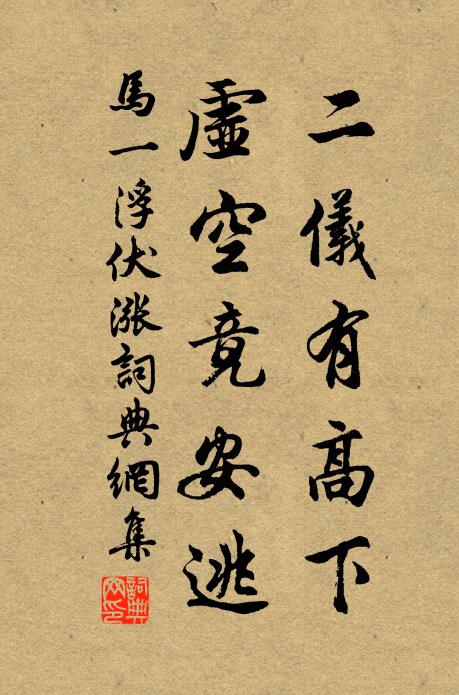 二儀有高下
虛空竟安逃
馬一浮伏漲詞典網集
詞典网印